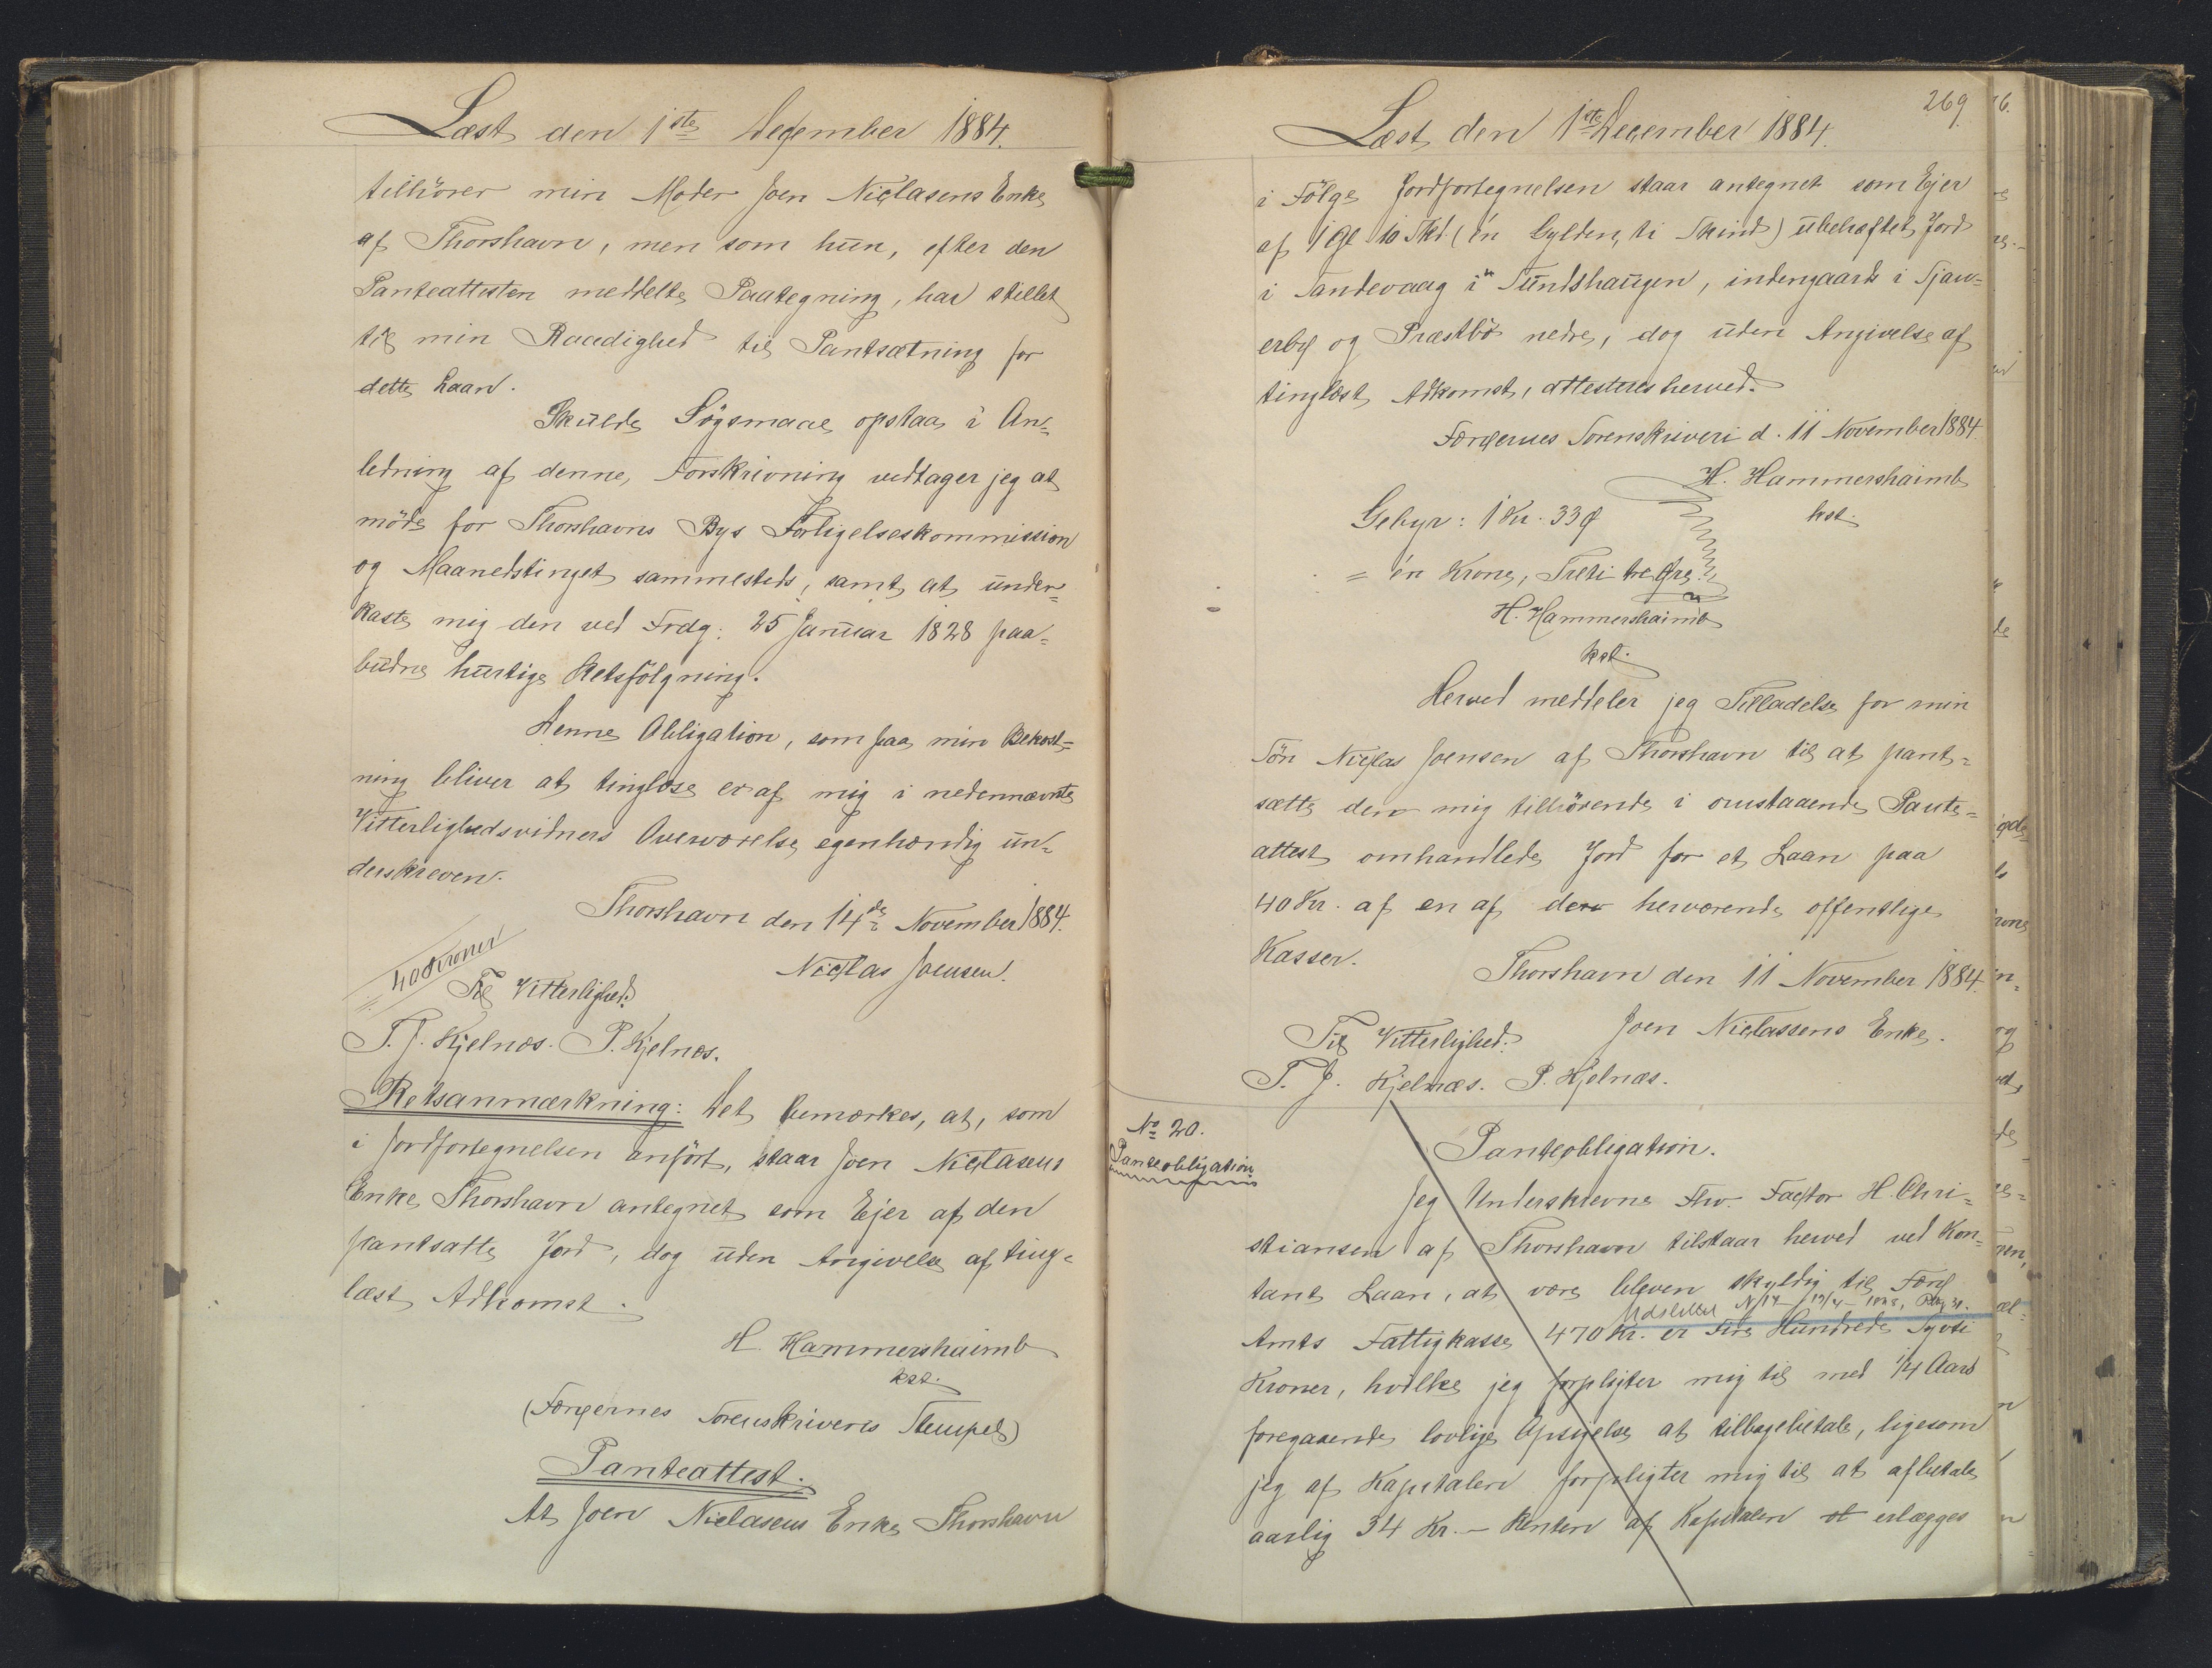 Læst den 1ste December 1884.
tilhörer min Moder Joen Niclasens Enke
af Thorshavn, men som hun, efter den
Panteattesten meddelte Paategning, har stillet
til min Raadighed til Pantsætning for
dette Laan.
Skulde Sögsmaal opstaa i An-
ledning af denne Forskrivning vedtager jeg at
möde for Thorshavns Bys Forligelseskommission
og Maanedstinget sammesteds, samt at under-
kaste mig den ved Frdg: 25 Januar 1828 paa-
budne hurtige Retsfölgning.
Denne Obligation, som paa min Bekost-
ning bliver at tinglæse er af mig i nedennævnte
Vitterlighedsvidners Overværelse egenhændig un-
derskreven.
Thorshavn den 14de November 1884.
40 Kroner
Niclas Joensen.
Til Vitterlighed:
T. J. Kjelnæs. P. Kjelnæs.
Retsanmærkning: Det bemærkes, at, som
i Jordfortegnelsen anfört, staar Joen Niclasens
Enke Thorshavn antegnet som Ejer af den
pantsatte Jord, dog uden Angivelse af ting-
læst Adkomst.
H. Hammershaimb
kst.
(Færøernes Sorenskriveris Stempel)
Panteattest.
At Joen Niclasens Enke Thorshavn
269
Læst den 1ste December 1884.
i Fölge Jordfortegnelsen staar antegnet som Ejer
af 1 Gl 10 Skd. (én Gylden, ti Skind) ubehæftet Jord
i Sandevaag i Sundshaugen, indengaards i Tjau-
erbø og Præstbö nedre, dog uden Angivelse af
tinglæst Adkomst, attesteres herved.
Færøernes Sorenskriveri d. 11 November 1884.
H. Hammershaimb
kst.
Gebyr: 1 Kr. 33 Ø
= én Krone, Treti tre Øre.
H. Hammershaimb
kst.
Herved meddeler jeg Tilladelse for min
Sön Niclas Joensen af Thorshavn til at pant-
sætte den mig tilhörende i omstaaende Pante-
attest omhandlede Jord for et Laan paa
40 Kr. af en af de herværende offentlige
Kasser.
Thorshavn den 11 November 1884.
Joen Niclassens Enke.
Til Vitterlighed:
T. J. Kjelnæs. P. Kjelnæs.
No 20.
Panteobligation
Panteobligation.
Jeg Underskrevne Fhv. Factor H. Chri-
stiansen af Thorshavn tilstaar herved ved Kon-
tant Laan, at være bleven skyldig til Færø
Udslettet
Amts Fattigkasse 470 Kr. er Fire Hundrede Syvti
Kroner, hvilke jeg forpligter mig til med 1/4 Aars
foregaaende lovlig Opsigelse at tilbagebetale, ligesom
jeg af Kapitalen forpligter mig til at afbetale
aarlig 34 Kr. – Renten af Kapitalen at erlægges